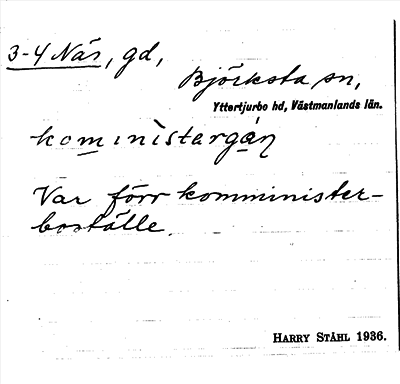 3-4 Näs, gd,
Björksta sn,
Yttertjurbo hd, Västmanlands län.
kominìstargán
Var förr komminister-
boställe.
HARRY STÅHL 1936.